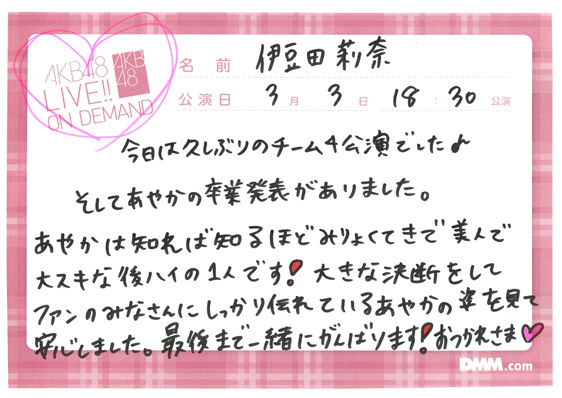 AKB48
LIVE!!
ON DEMAND
AKB
48
名前 伊豆田莉奈
公演日 3月3日 18:30公演
今日は久しぶりのチーム4公演でした♪
そしてあやかの卒業発表がありました。
あやかは知れば知るほどみりょくてきで美人で
大スキな後ハイの1人です!大きな決断をして
ファンのみなさんにしっかり伝れているあやかの姿を見て
安心しました。最後まで一緒にがんばります!おつかれさま♡
DMM.com